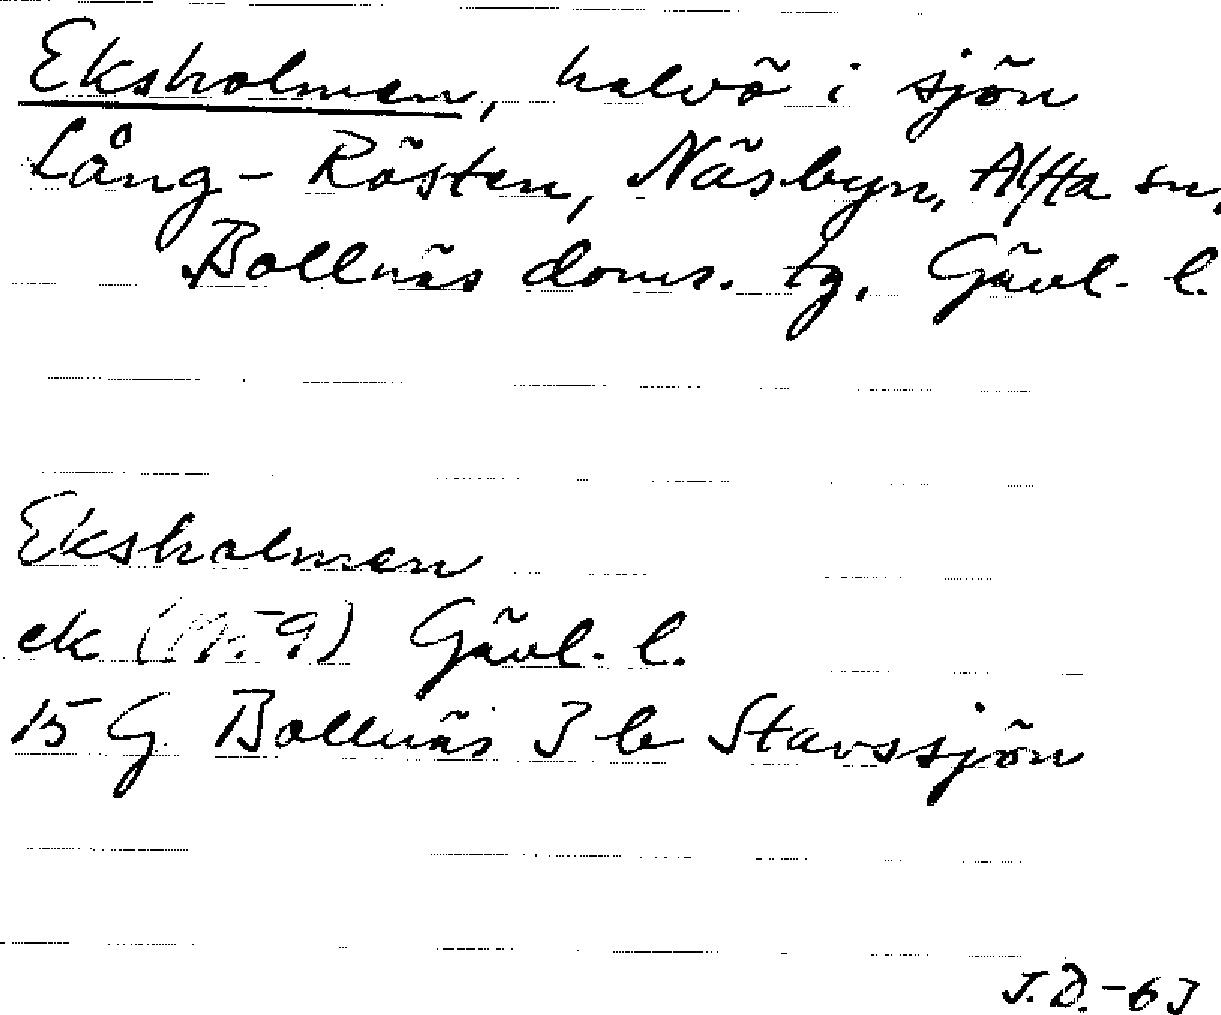 Eksholmen, halvö i sjön
Lång-Rösten, Näsbyn, Alfta sn,
Bollnäs doms. tg. Gävl. l.
Eksholmen
ek Gävl. l.
15 G Bollnäs 3 b Stavssjön
J.D.-63